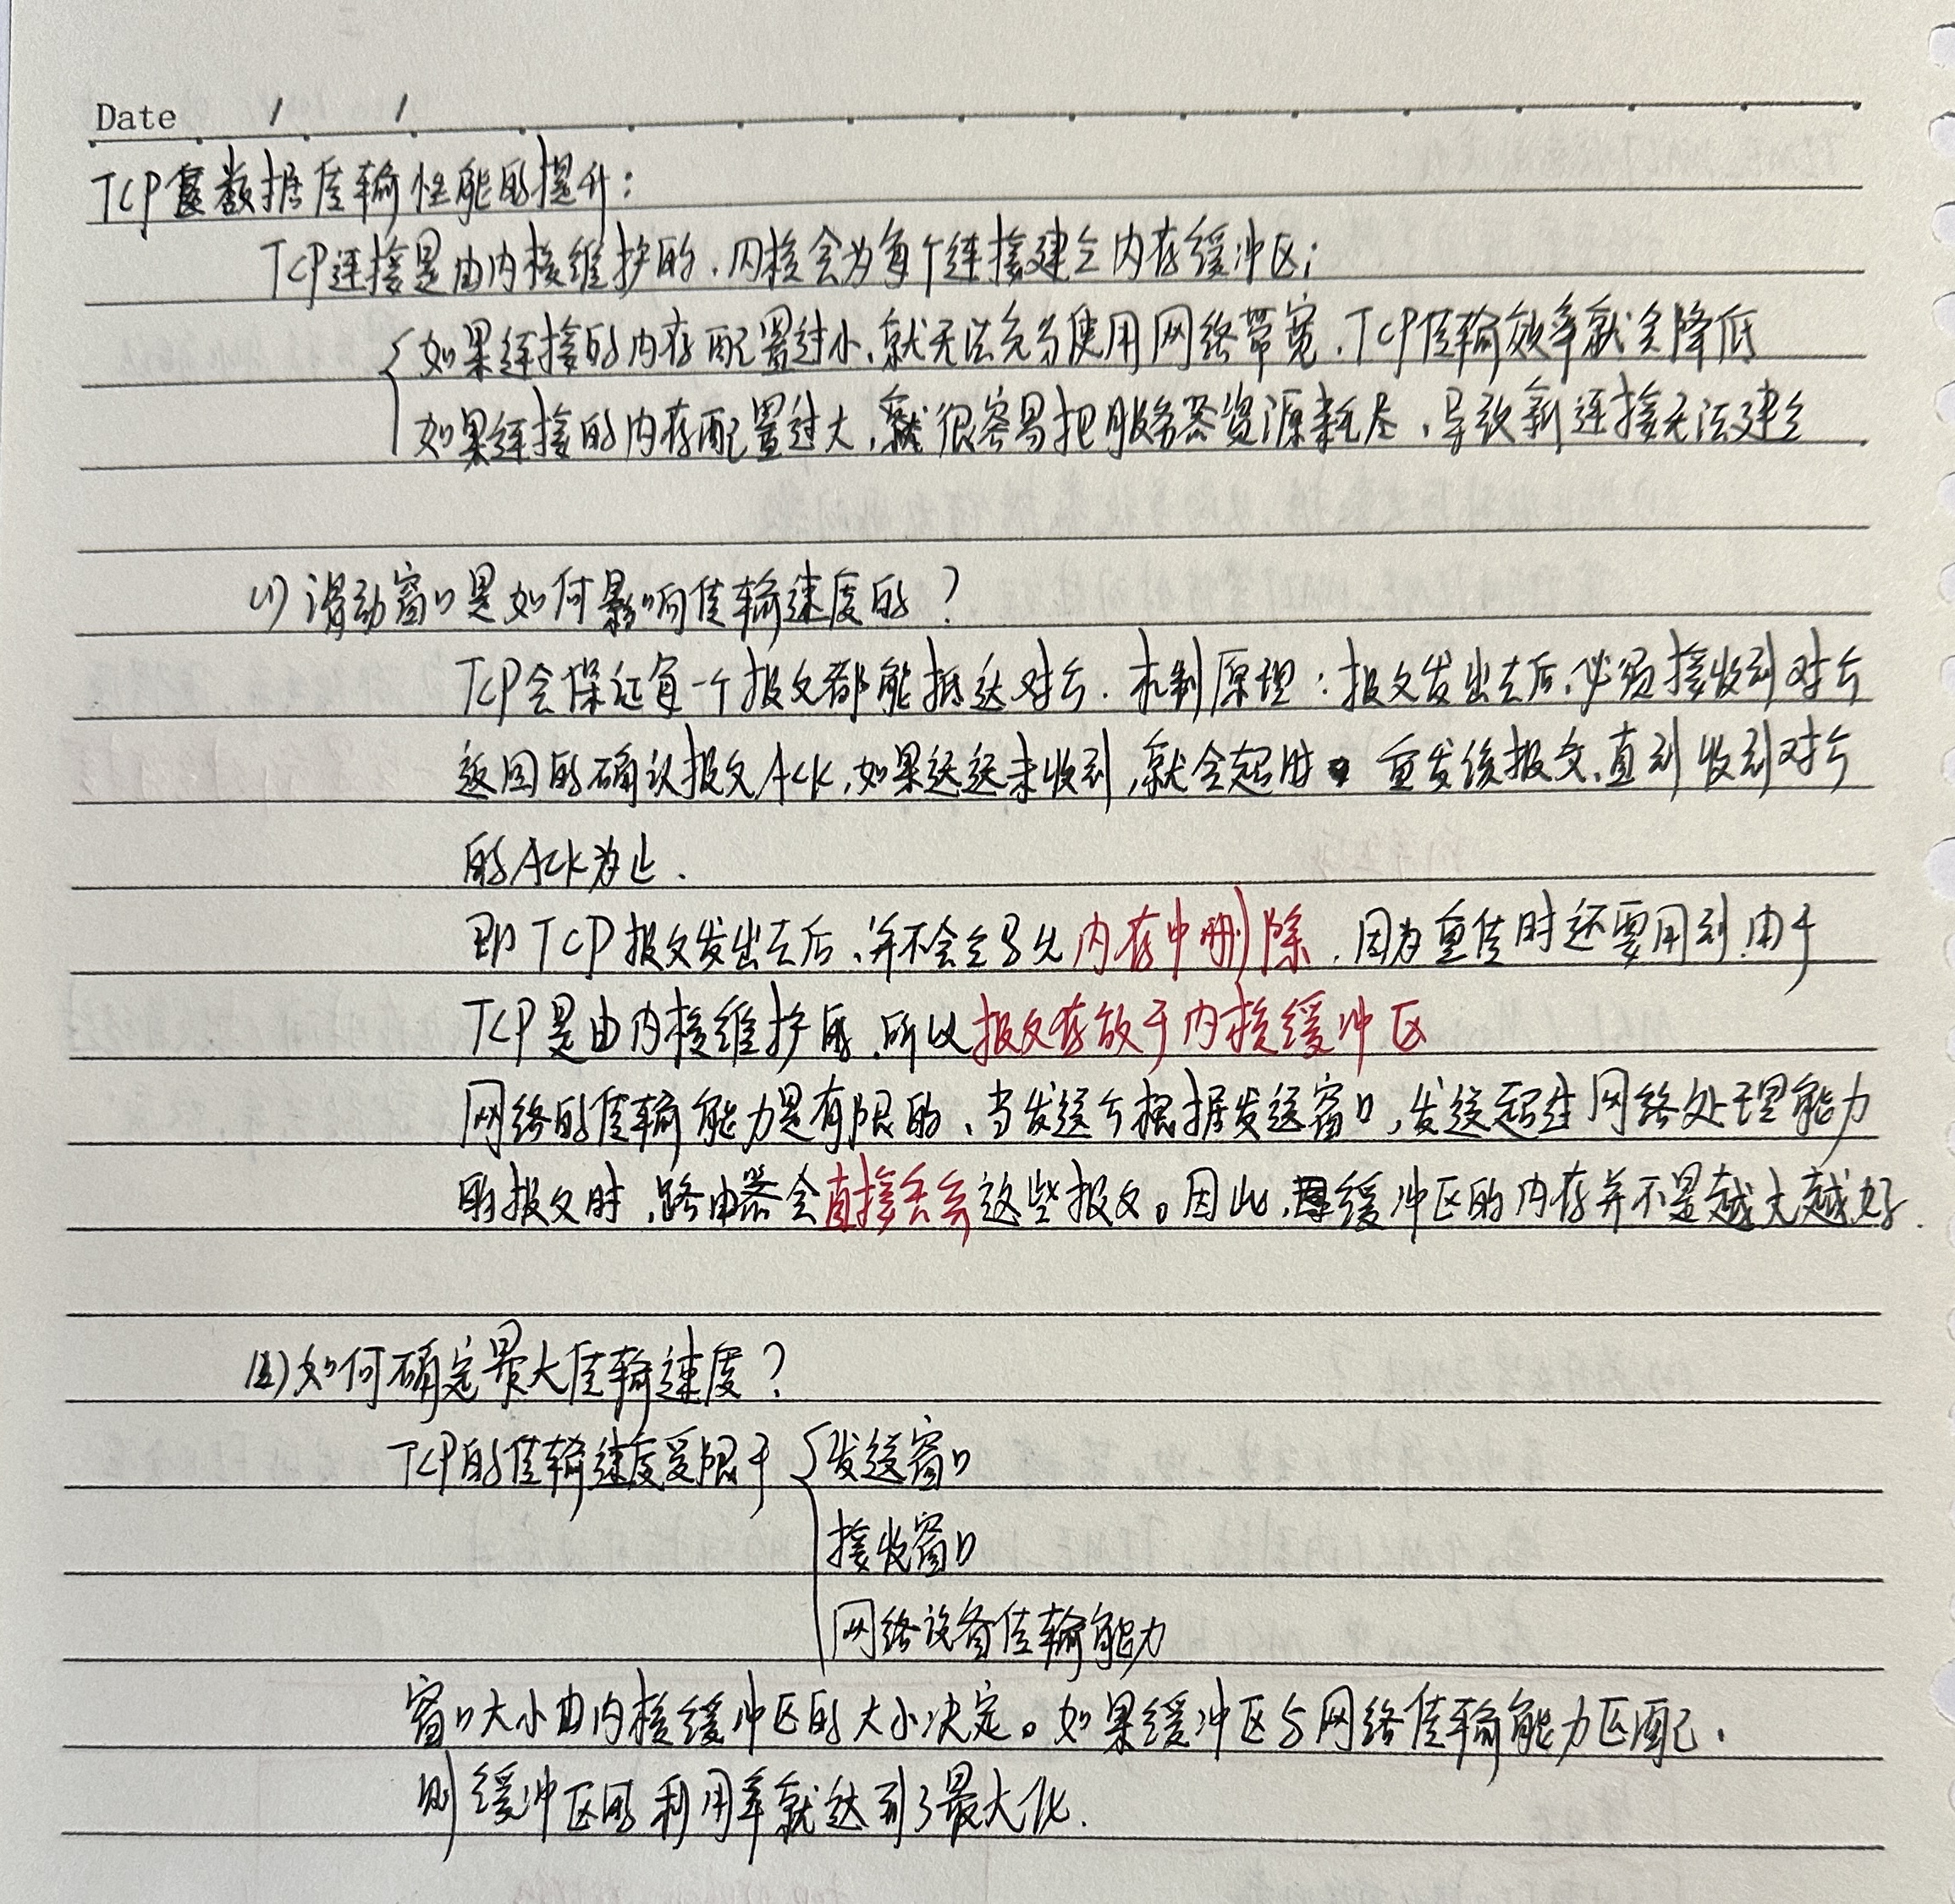 Date / /
TCP数据传输性能的提升:
TCP连接是由内核维护的,内核会为每个连接建立内存缓冲区;
如果连接的内存配置过小,就无法充分使用网络带宽,TCP传输效率就会降低
如果连接的内存配置过大,就很容易把服务器资源耗尽,导致新连接无法建立.
(1) 滑动窗口是如何影响传输速度的?
TCP会保证每一个报文都能抵达对方.机制原理:报文发出去后,必须接收到对方
返回的确认报文ACK,如果迟迟未收到,就会超时重发该报文,直到收到对方
的ACK为止.
即TCP报文发出去后,并不会立马从内存中删除,因为重传时还要用到.由于
TCP是由内核维护的,所以报文存放于内核缓冲区
网络的传输能力是有限的,当发送方根据发送窗口,发送超过网络处理能力
的报文时,路由器会直接丢弃这些报文。因此,缓冲区的内存并不是越大越好.
(2) 如何确定最大传输速度?
TCP的传输速度受限于 发送窗口
接收窗口
网络设备传输能力
窗口大小由内核缓冲区的大小决定。如果缓冲区与网络传输能力匹配,
则缓冲区的利用率就达到了最大化.